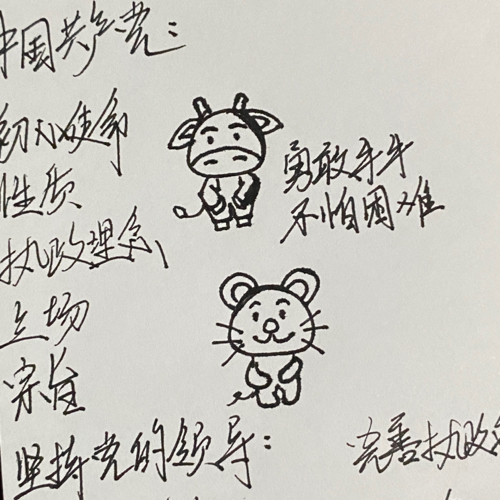 中国共产党：
初心使命
性质
执政理念
立场
宗旨
坚持党的领导：
勇敢牛牛
不怕困难
完善执政